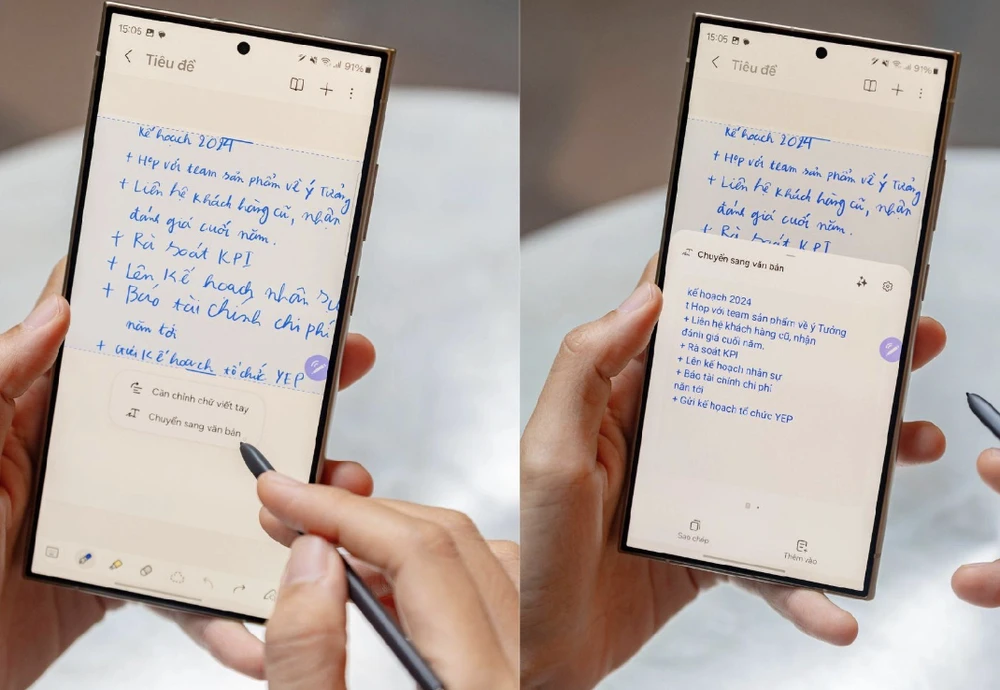 15:05
91%
Tiêu đề
kế hoạch 2024
+ Họp với team sản phẩm về ý Tưởng
+ Liên hệ khách hàng cũ, nhận
đánh giá cuối năm.
+ Rà soát KPI
+ Lên kế hoạch nhân sự
+ Báo tài chính chi phí
năm tới
+ Gửi kế hoạch tổ chức YEP
Căn chỉnh chữ viết tay
Chuyển sang văn bản
15:05
91%
Tiêu đề
kế hoạch 2024
+ Họp với team sản phẩm về ý Tưởng
+ Liên hệ khách hàng cũ, nhận
đánh giá cuối năm.
+ Rà soát KPI
Chuyển sang văn bản
kế hoạch 2024
t Họp với team sản phẩm về ý Tưởng
+ Liên hệ khách hàng cũ, nhận
đánh giá cuối năm.
+ Rà soát KPI
+ Lên kế hoạch nhân sự
+ Báo tài chính chi phí
năm tới
+ Gửi kế hoạch tổ chức YEP
Sao chép
Thêm vào